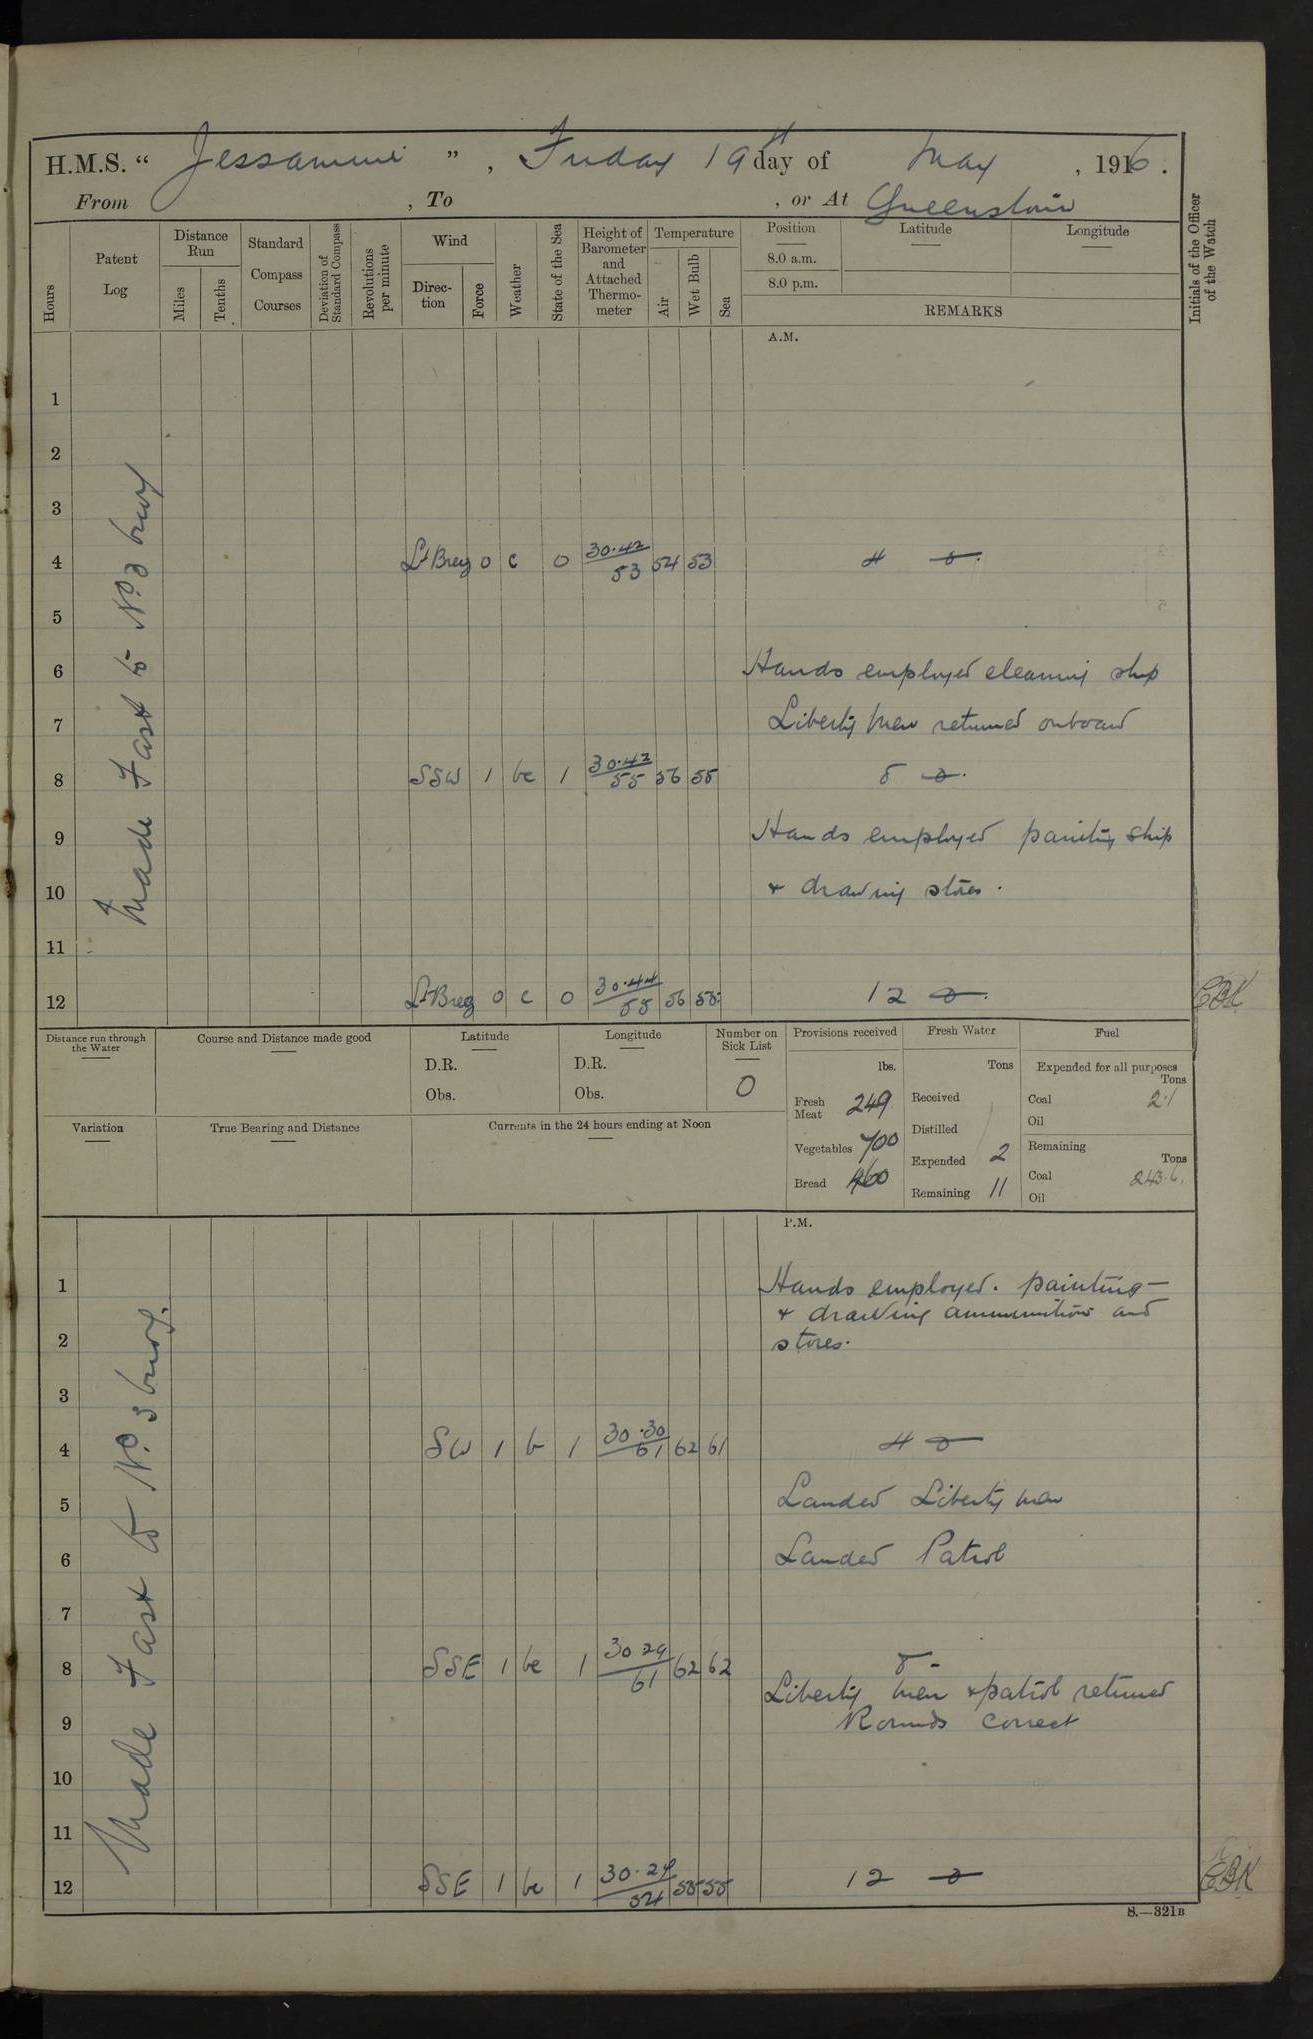 H.M.S. “ Jessamine ” , Friday 19th day of May , 1916 .
From , To , or At Queenstown
Hours
Patent Log
Distance Run
Miles
Tenths
Standard Compass Courses
Deviation of Standard Compass
Revolutions per minute
Wind
Direction
Force
Weather
State of the Sea
Height of Barometer and Attached Thermometer
Temperature
Air
Wet Bulb
Sea
Position
8.0 a.m.
8.0 p.m.
Latitude
Longitude
REMARKS
Initials of the Officer of the Watch
A.M.
Made Fast to No. 3 buoy
1
2
3
4 Lt Breez 0 c 0 30.42 53 54 53 4
5
6 Hands employed cleaning ship
7 Liberty men returned onboard
8 SSW 1 bc 1 30.42 55 56 55 8
9 Hands employed painting ship
10 & drawing stores.
11
12 Lt Breez 0 c 0 30.44 55 56 55 12 CBK
Distance run through the Water
Course and Distance made good
Latitude
D.R.
Obs.
Longitude
D.R.
Obs.
Number on Sick List
0
Variation
True Bearing and Distance
Currents in the 24 hours ending at Noon
Provisions received
lbs.
Fresh Meat 249
Vegetables 700
Bread 460
Fresh Water
Tons
Received
Distilled
Expended 2
Remaining 11
Fuel
Expended for all purposes
Tons
Coal 2.1
Oil
Remaining
Tons
Coal 243.6.
Oil
P.M.
Made Fast to No. 3 buoy.
1 Hands employed. painting
& drawing ammunition and
2 stores.
3
4 SW 1 b 1 30.30 61 62 61 4
5 Landed Liberty men
6 Landed Patrol
7
8 SSE 1 bc 1 30 29 61 62 62 8
Liberty men & patrol returned
9 Rounds correct
10
11
12 SSE 1 bc 1 30.29 54 55 55 12 CBK
S.—321B